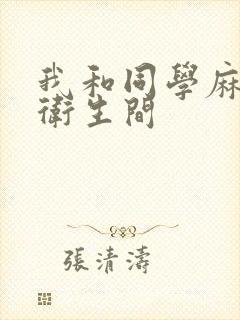 我和同學麻
衛生間
張清濤